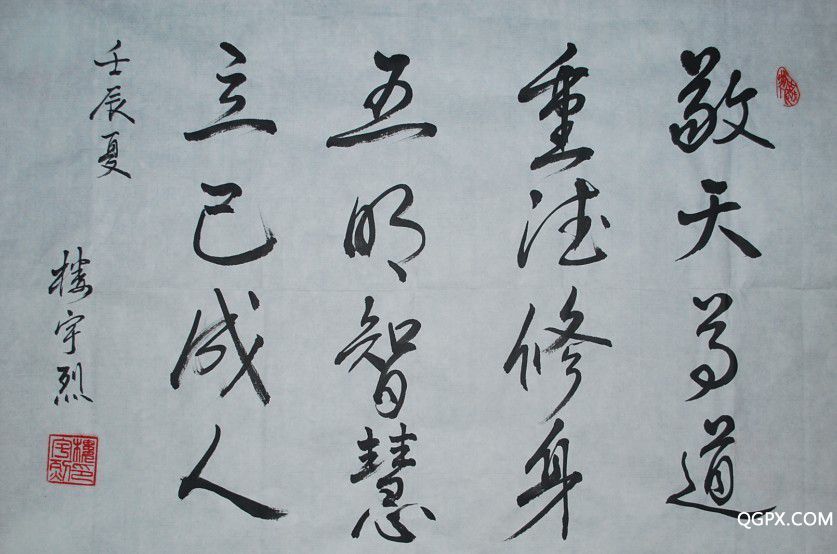 敬天尊道
重德修身
五明智慧
立己成人
壬辰夏
楼宇烈
QGPX.COM